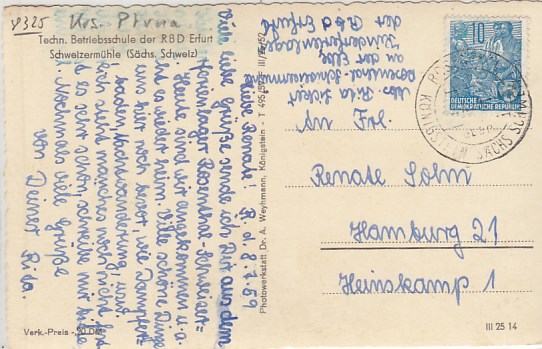 V325 Krs. Pirna
Techn. Betriebsschule der RBD Erfurt
Schweizermühle (Sächs. Schweiz)
Liebe Renate! R. d. 8.7.59
Viele liebe Grüße sende ich Dir aus dem
Ferienlager Rosenthal-Schweizer=
Heute sind wir angekommen u. a.
es wieder heim. Viele schöne Dinge
uns hier noch bevor, wie Dampfer=
baden, Nachtwanderung, usw.
ich sieht manches noch nicht fest
es sehr schön, schreibe mir bitte
Nochmals viele Grüße
von Deiner
Rita.
Verk.-Preis -.20 DM
Photowerkstatt Dr. A. Weyhmann, Königstein - T 495/57 F III/26/52
Abs. Rita
Rosenthal-Schweizermühle
an der Elbe
Kinderferienlager
der Rbd Erfurt
10
DEUTSCHE
DEMOKRATISCHE REPUBLIK
KÖNIGSTEIN SÄCHS SCHWEIZ
An Frl.
Renate Sohn
Hamburg 21
Heinskamp 1
III 25 14